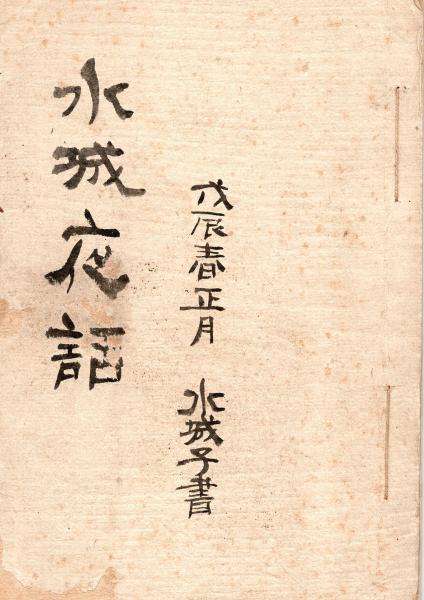 戊辰春正月 水城子書
水城夜話